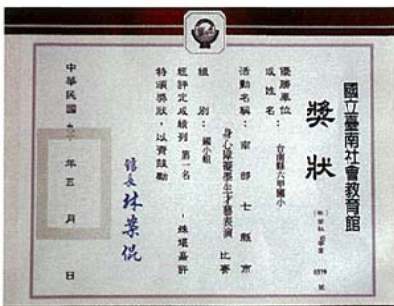 國立臺南社會教育館
獎狀
0379 號
優勝單位
或姓名：台南縣六甲國小
活動名稱：南部七縣市
身心障礙學生才藝表演 比賽
組別：國小組
經評定成績列 第一名 殊堪嘉許
特頒獎狀，以資鼓勵
館長 林榮
中華民國 年五月 日